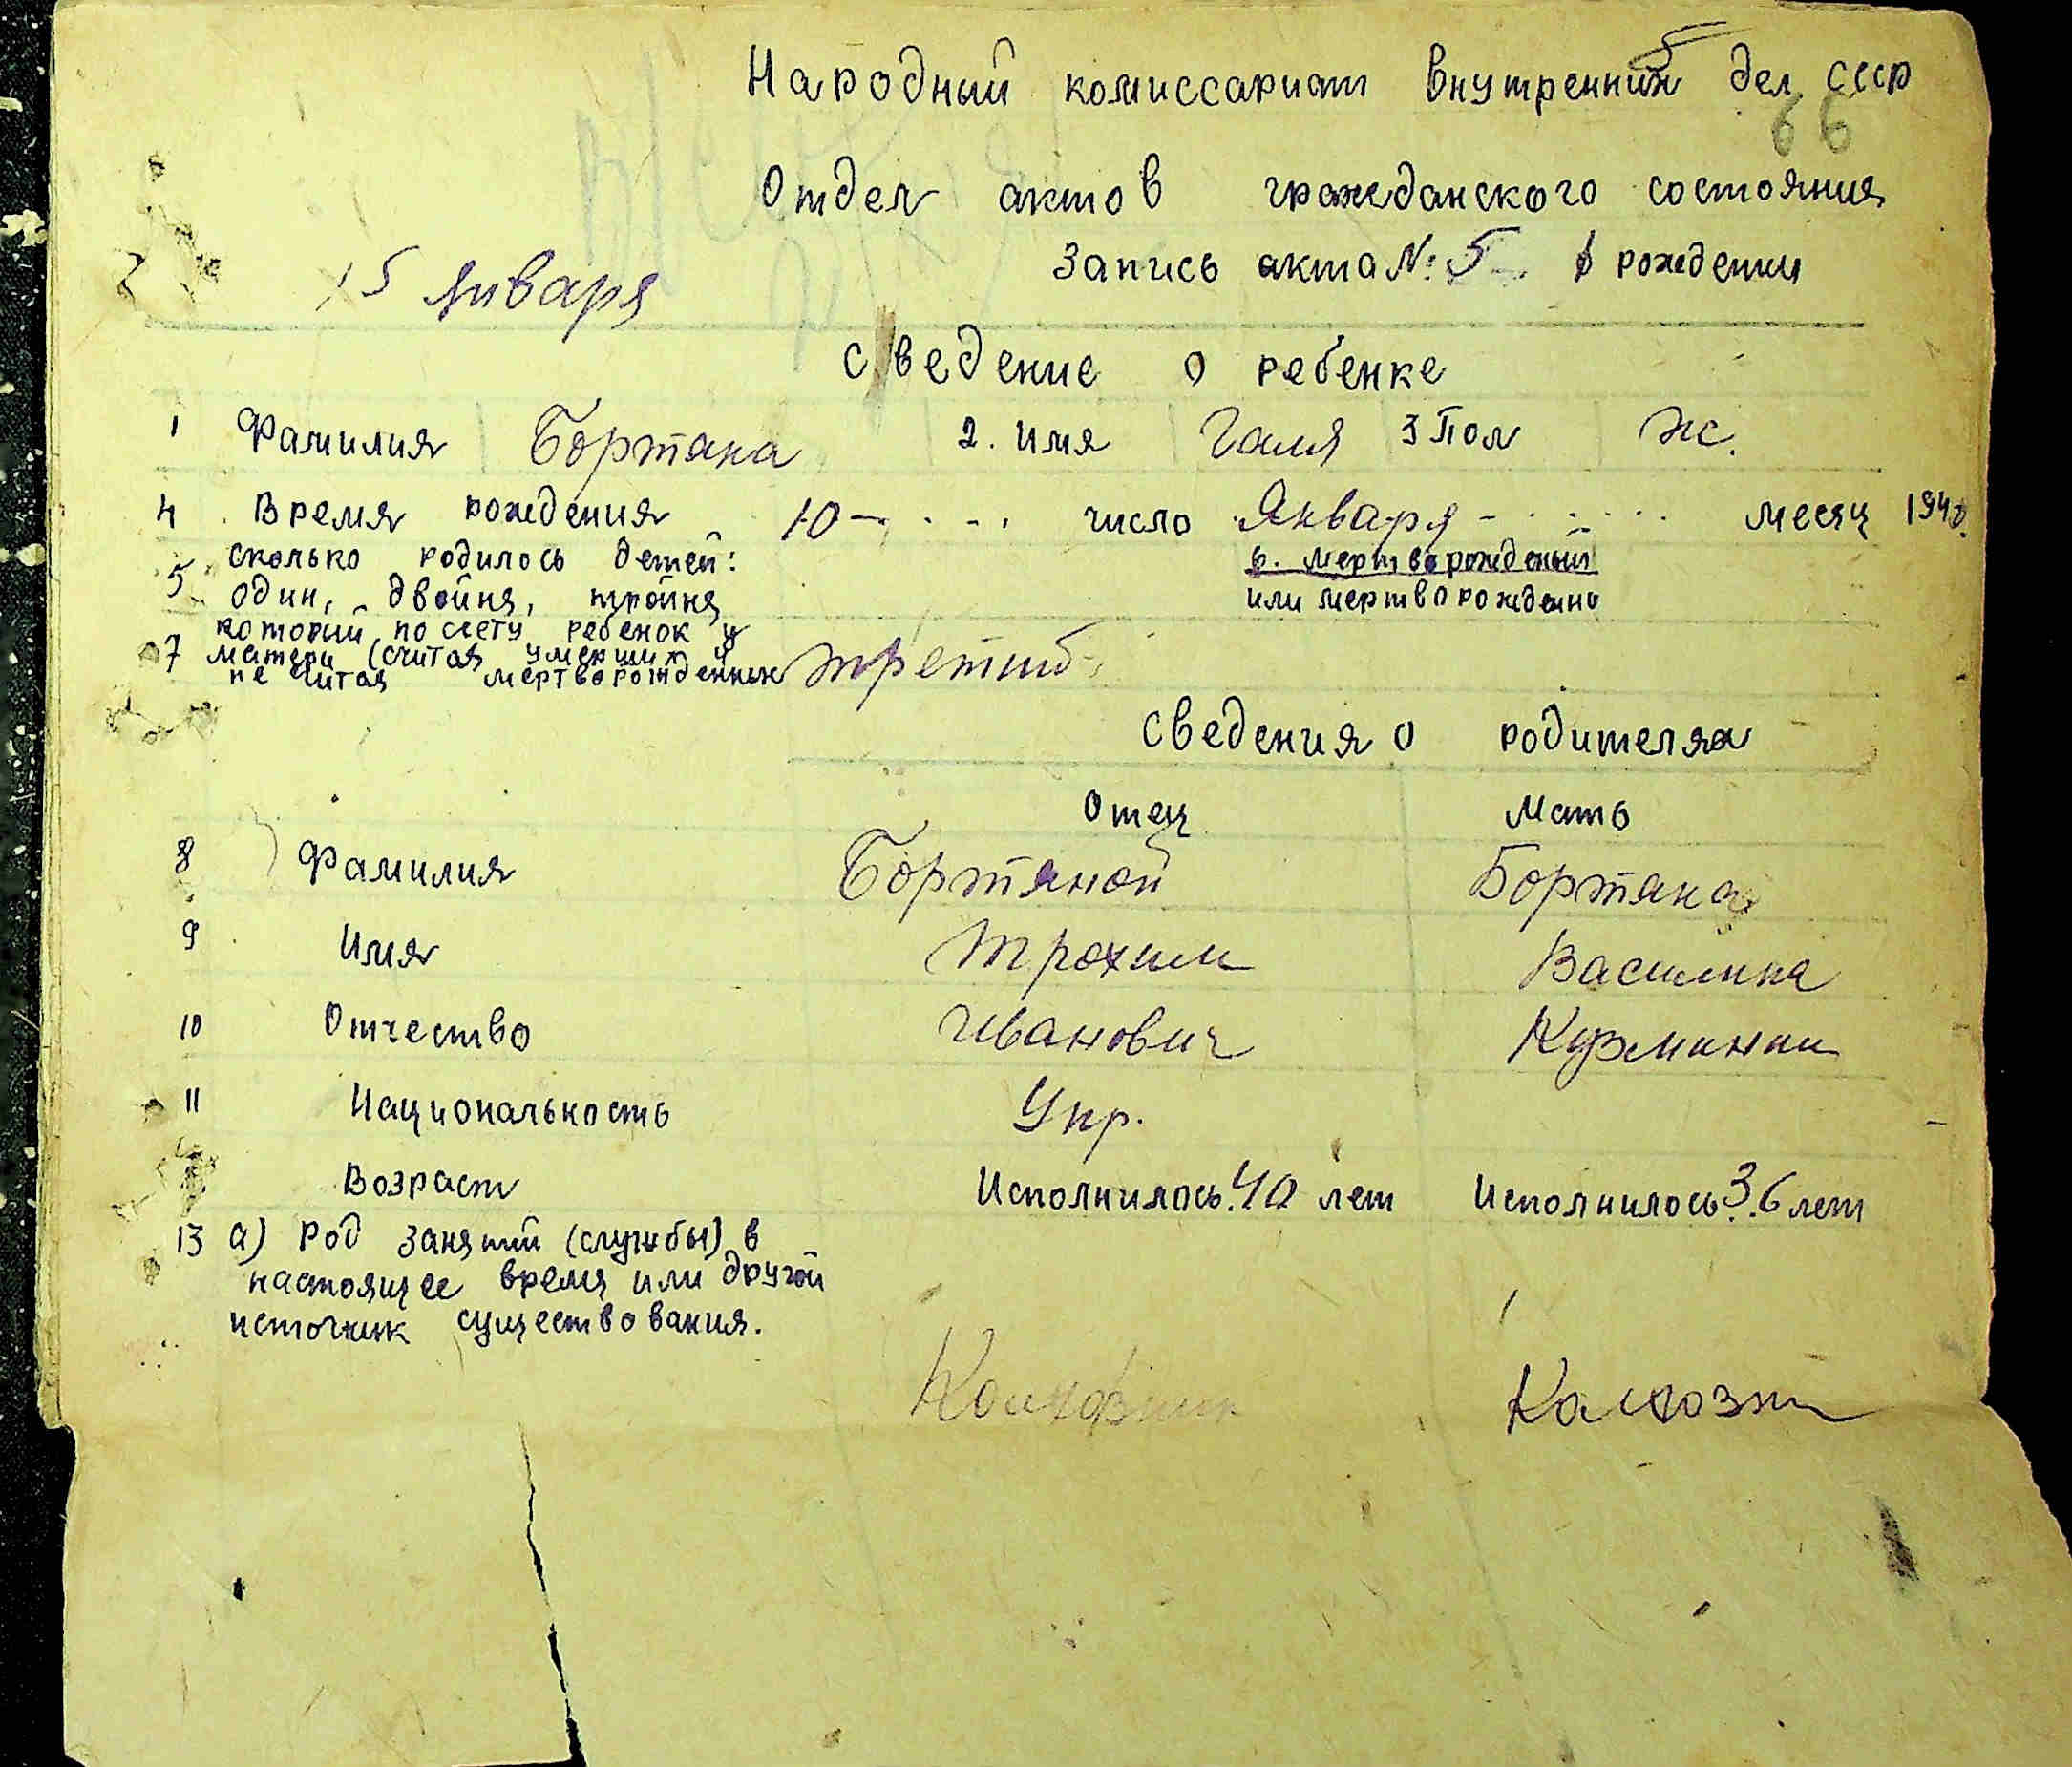 5
Народный комиссариат внутренних дел СССР
66
Отдел актов гражданского состояния
Запись акта №: 5 о рождении
15 января
Сведение о ребенке
1 Фамилия Бортяна 2. Имя Галя 3 Пол ж.
4 Время рождения 10 число Января месяц 1940.
5 сколько родилось детей: один, двойня, тройня
6. мертворожденый
или мертворождено
7 который по счету ребенок у
матери (считая умерших и
не считая мертворожденных третий
Сведения о родителях
Отец Мать
8 Фамилия Бортяной Бортяна
9 Имя Трохим Василина
10 Отчество Иванович
11 Национальность Укр.
Возраст Исполнилось 40 лет Исполнилось 36 лет
13 а) Род занятий (службы) в
настоящее время или другой
источник существования.
Колхозник Колхозн